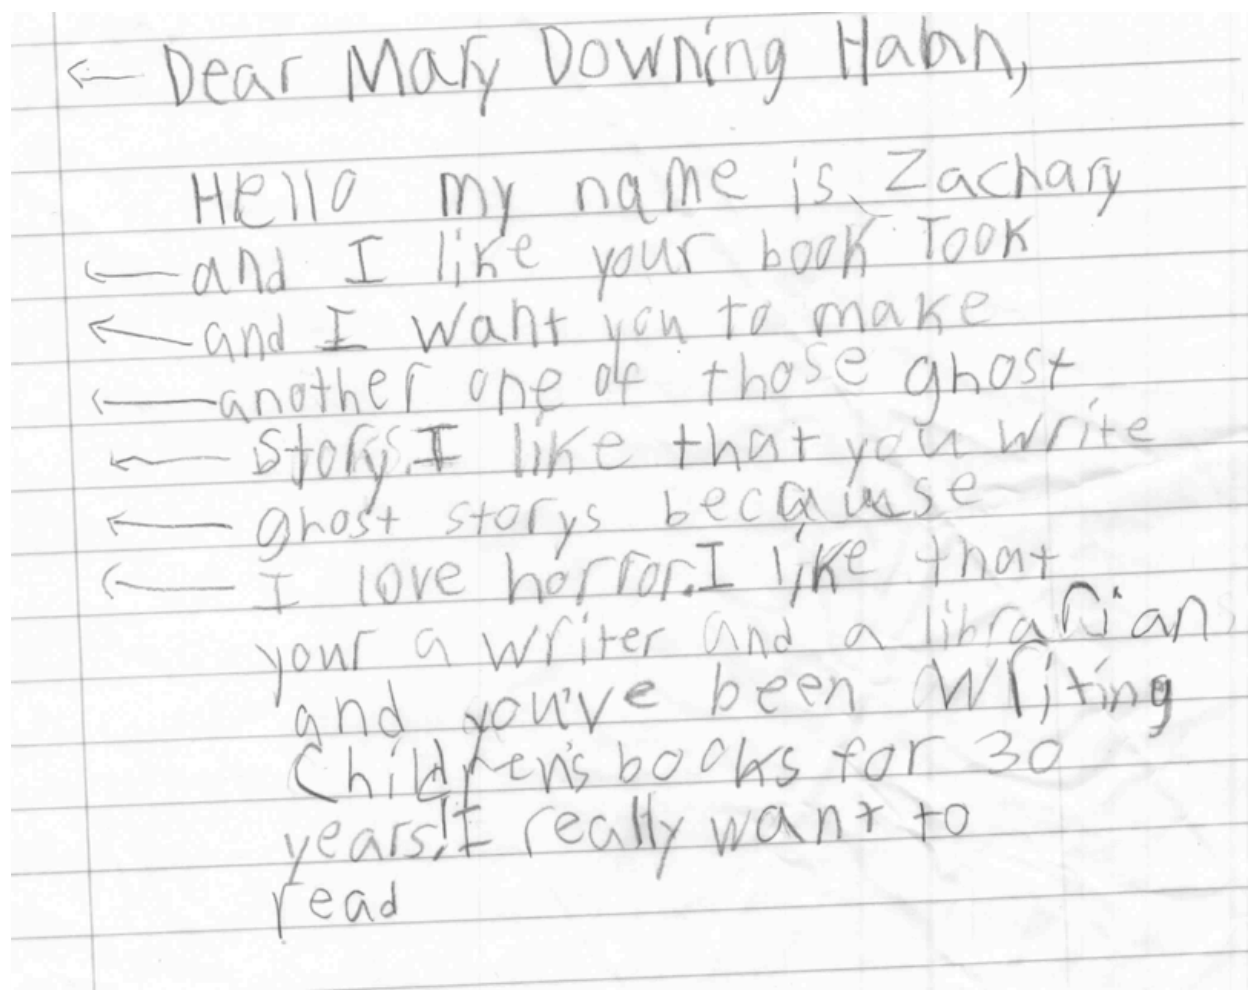 Dear Mary Downing Hahn,
Hello my name is Zachary
and I like your book Took
and I want you to make
another one of those ghost
storys. I like that you write
ghost storys because
I love horror. I like that
your a writer and a librarian
and you've been writing
Children's books for 30
years! I really want to
read